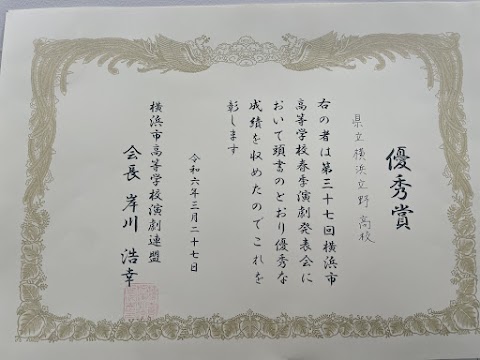 優秀賞
県立横浜立野高校
右の者は第三十七回横浜市
高等学校春季演劇発表会に
おいて頭書のとおり優秀な
成績を収めたのでこれを
彰します
令和六年三月二十七日
横浜市高等学校演劇連盟
会長 岸川 浩幸